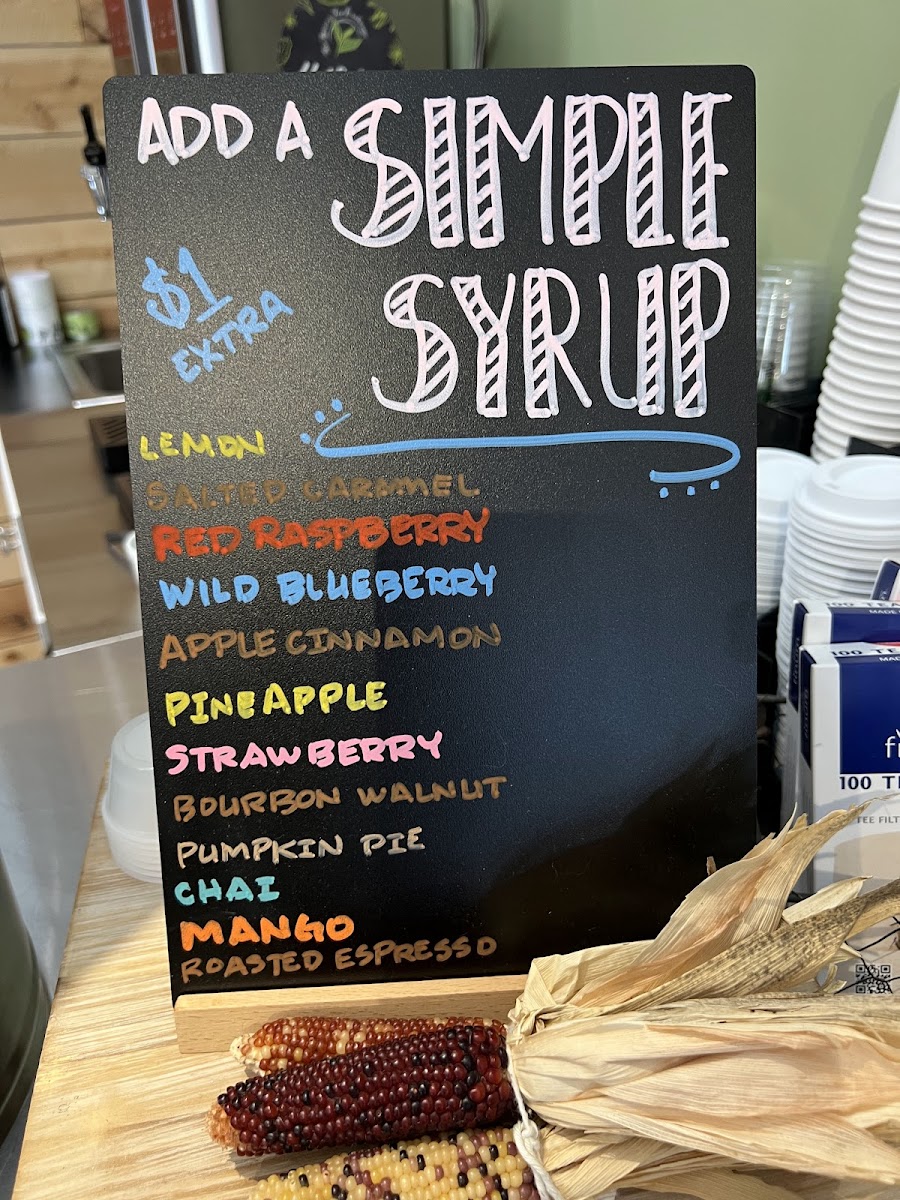 ADD A SIMPLE
SYRUP
$1
EXTRA
LEMON
SALTED CARAMEL
RED RASPBERRY
WILD BLUEBERRY
APPLE CINNAMON
PINEAPPLE
STRAWBERRY
BOURBON WALNUT
PUMPKIN PIE
CHAI
MANGO
ROASTED ESPRESSO
100 TEA
MADE
100 TE
MAD
100 T